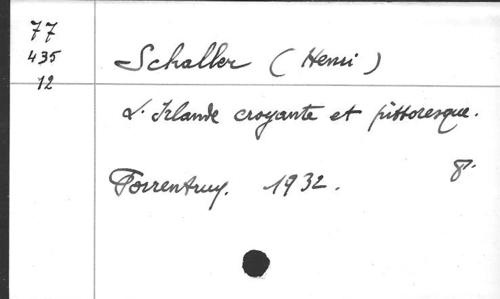 77
435
12
Schaller (Henri)
L'Irlande croyante et pittoresque.
Porrentruy. 1932. 8°.